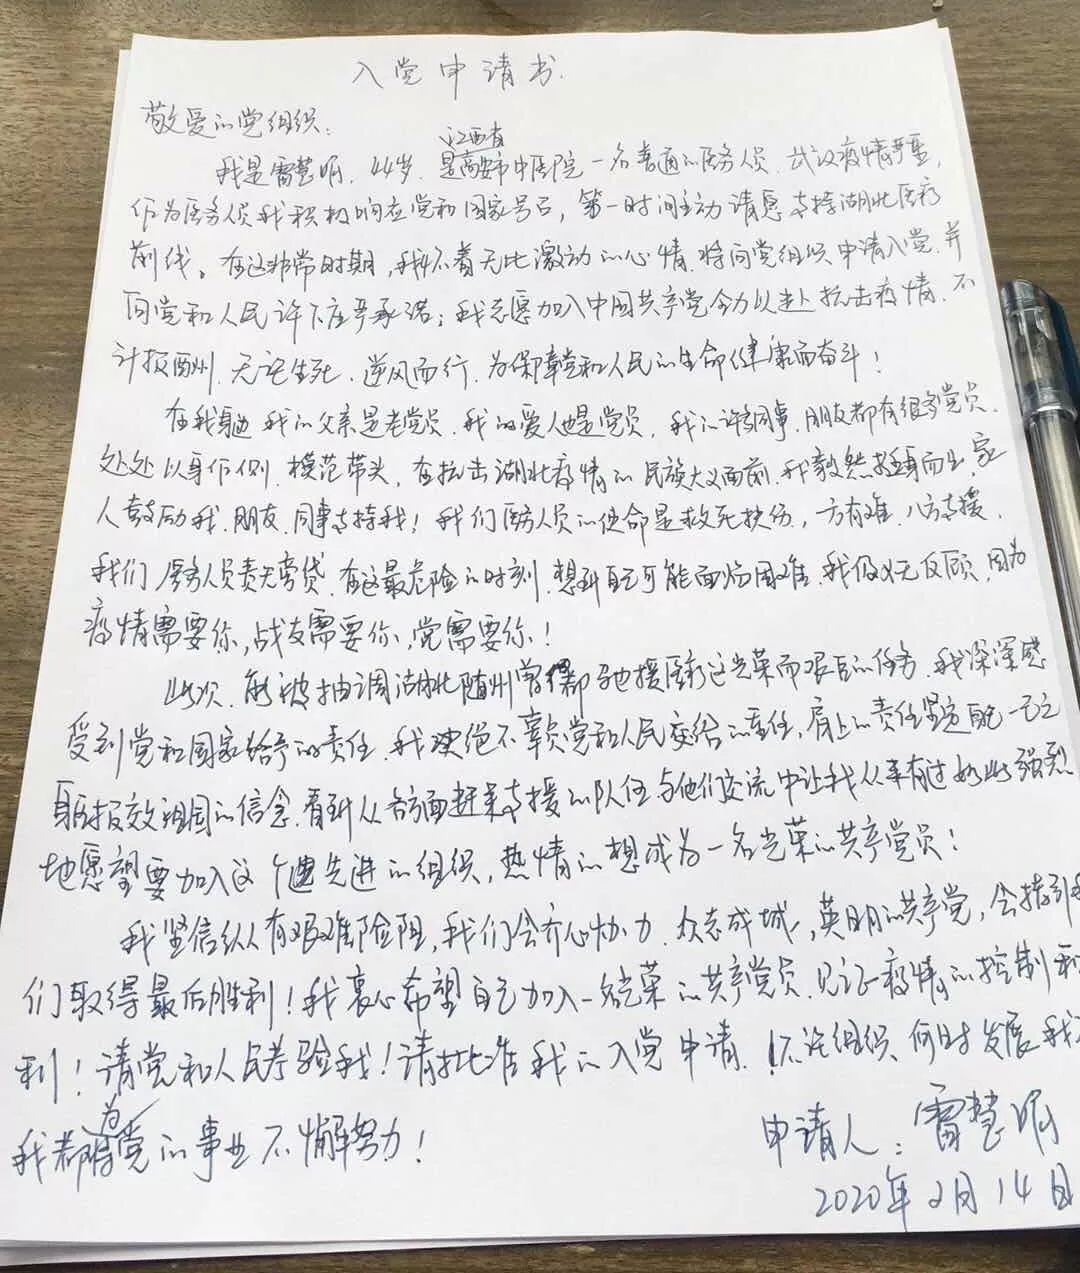 入党申请书.
敬爱的党组织:
江西省
我是雷慧明. 44岁. 是高安市中医院一名普通的医务人员. 武汉疫情严重,
作为医务人员我积极响应党和国家号召, 第一时间主动请愿支持湖北医疗
前线。在这非常时期, 我怀着无比激动的心情. 特向党组织申请入党. 并
向党和人民许下庄严承诺; 我志愿加入中国共产党全力以赴抗击疫情. 不
计报酬. 无论生死. 逆风而行. 为保障党和人民的生命健康而奋斗!
在我身边 我的父亲是老党员. 我的爱人也是党员. 我的许多同事. 朋友都有很多党员.
处处以身作则. 模范带头. 在抗击湖北疫情的民族大义面前. 我毅然挺身而出, 家
人鼓励我. 朋友. 同事支持我! 我们医务人员的使命是救死扶伤, 一方有难. 八方支援.
我们医务人员责无旁贷. 在这最危险的时刻. 想到自己可能面临困难. 我仍义无反顾, 因为
疫情需要你, 战友需要你, 党需要你!
此次. 能被抽调湖北随州曾都驰援医疗这光荣而艰巨的任务. 我深深感
受到党和国家给予的责任. 我决绝不辜负党和人民交给的重任, 肩上的责任坚定
报效祖国的信念. 看到从各方面赶来支援的队伍与他们交流中让我从未有过如此强烈
地愿望要加入这个先进的组织, 热情的想成为一名光荣的共产党员!
我坚信纵有艰难险阻, 我们会齐心协力. 众志成城, 英明的共产党, 会指引我
们取得最后胜利! 我衷心希望自己加入一名光荣的共产党员. 见证疫情的控制
利! 请党和人民考验我! 请批准我的入党申请. 不论组织何时发展我
为
我都将党的事业不懈努力!
申请人: 雷慧明
2020年2月14日